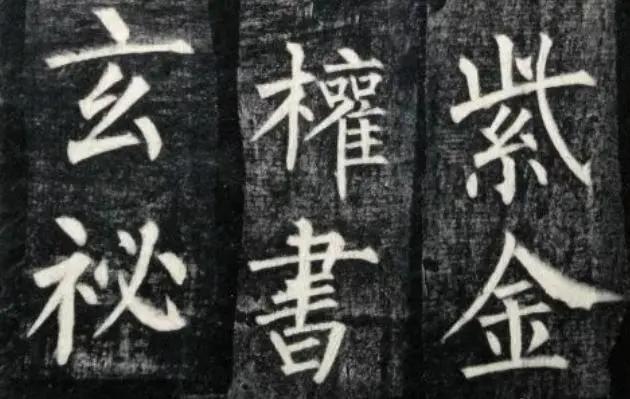 紫金
權書
玄祕